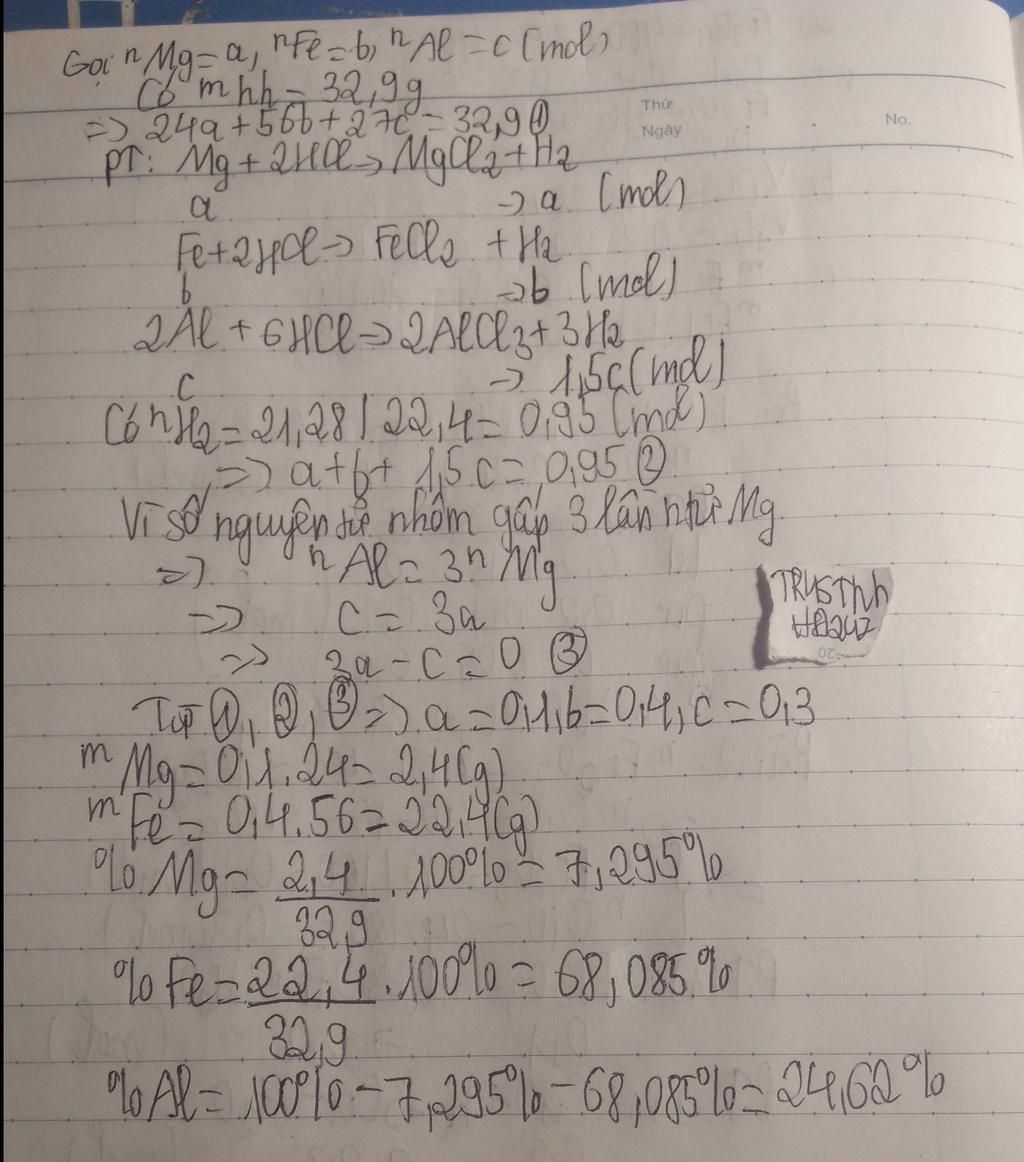 Gọi nMg=a, nFe=b, nAl=c (mol)
Có mhh=32,9g
=> 24a+56b+27c=32,9 ①
Thứ
Ngày
No.
PT: Mg+2HCl->MgCl2+H2
a -> a (mol)
Fe+2HCl-> FeCl2 +H2
b ->b (mol)
2Al+6HCl->2AlCl3+3H2
c -> 1,5c(mol)
Có nH2=21,28/22,4=0,95(mol)
=> a+b+1,5c=0,95 ②
Vì số nguyên tử nhôm gấp 3 lần Mg
=> nAl=3nMg
=> c=3a
=> 3a-c=0 ③
TRUSThh
20
Từ ①, ②, ③ => a=0,1,b=0,4,c=0,3
mMg=0,1.24=2,4(g)
mFe=0,4.56=22,4(g)
%Mg=2,4/32,9.100%=7,295%
%Fe=22,4/32,9.100%=68,085%
%Al=100%-7,295%-68,085%=24,62%